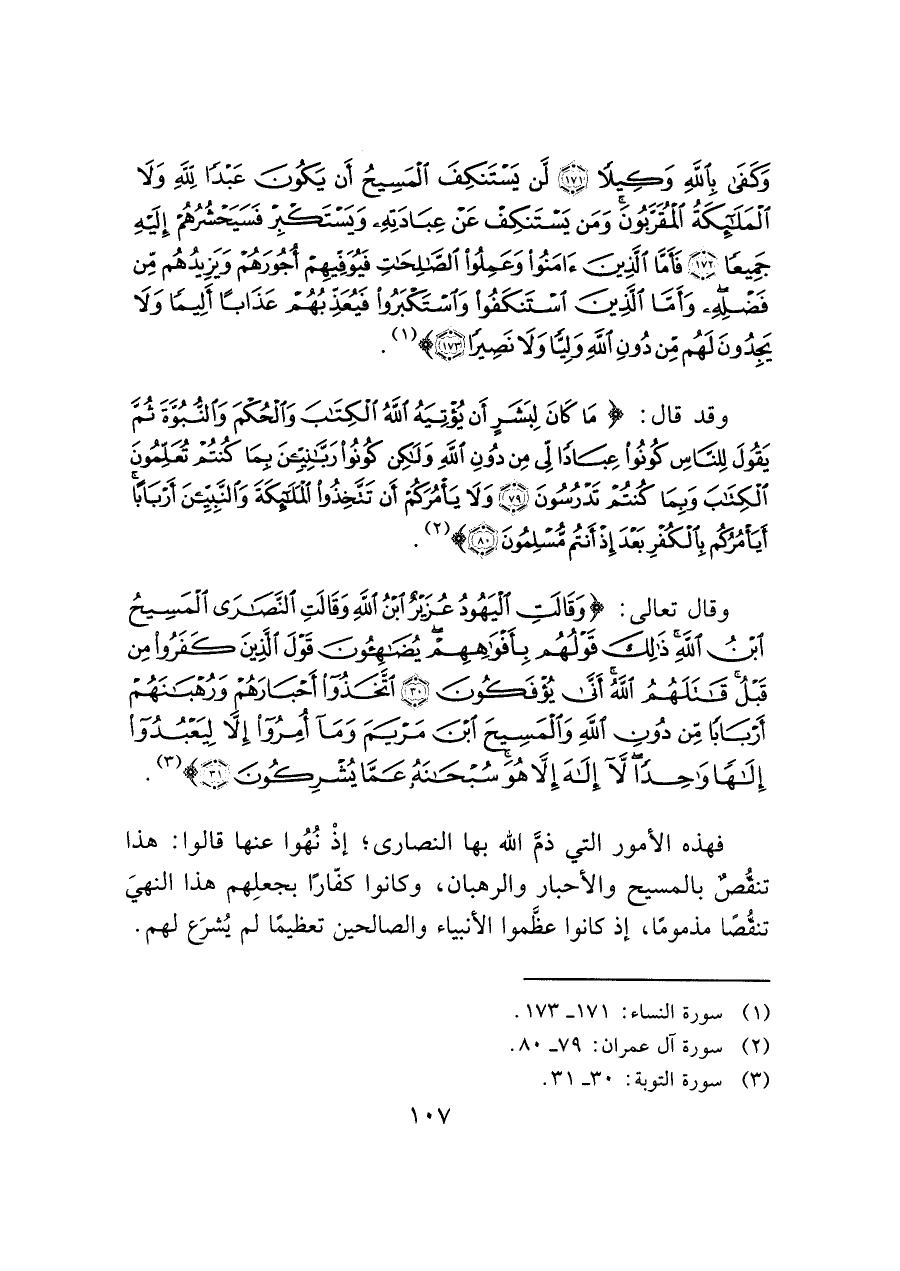 وَكَفَىٰ بِٱللَّهِ وَكِيلًا ۝١٧١ لَّن يَسْتَنكِفَ ٱلْمَسِيحُ أَن يَكُونَ عَبْدًا لِّلَّهِ وَلَا
ٱلْمَلَٰٓئِكَةُ ٱلْمُقَرَّبُونَ ۚ وَمَن يَسْتَنكِفْ عَنْ عِبَادَتِهِۦ وَيَسْتَكْبِرْ فَسَيَحْشُرُهُمْ إِلَيْهِ
جَمِيعًا ۝١٧٢ فَأَمَّا ٱلَّذِينَ ءَامَنُوا۟ وَعَمِلُوا۟ ٱلصَّٰلِحَٰتِ فَيُوَفِّيهِمْ أُجُورَهُمْ وَيَزِيدُهُم مِّن
فَضْلِهِۦ ۖ وَأَمَّا ٱلَّذِينَ ٱسْتَنكَفُوا۟ وَٱسْتَكْبَرُوا۟ فَيُعَذِّبُهُمْ عَذَابًا أَلِيمًا وَلَا
يَجِدُونَ لَهُم مِّن دُونِ ٱللَّهِ وَلِيًّا وَلَا نَصِيرًا ۝١٧٣﴾(١).
وقد قال: ﴿ مَا كَانَ لِبَشَرٍ أَن يُؤْتِيَهُ ٱللَّهُ ٱلْكِتَٰبَ وَٱلْحُكْمَ وَٱلنُّبُوَّةَ ثُمَّ
يَقُولَ لِلنَّاسِ كُونُوا۟ عِبَادًا لِّى مِن دُونِ ٱللَّهِ وَلَٰكِن كُونُوا۟ رَبَّٰنِيِّۦنَ بِمَا كُنتُمْ تُعَلِّمُونَ
ٱلْكِتَٰبَ وَبِمَا كُنتُمْ تَدْرُسُونَ ۝٧٩ وَلَا يَأْمُرَكُمْ أَن تَتَّخِذُوا۟ ٱلْمَلَٰٓئِكَةَ وَٱلنَّبِيِّۦنَ أَرْبَابًا ۗ
أَيَأْمُرُكُم بِٱلْكُفْرِ بَعْدَ إِذْ أَنتُم مُّسْلِمُونَ ۝٨٠﴾(٢).
وقال تعالى: ﴿وَقَالَتِ ٱلْيَهُودُ عُزَيْرٌ ٱبْنُ ٱللَّهِ وَقَالَتِ ٱلنَّصَٰرَى ٱلْمَسِيحُ
ٱبْنُ ٱللَّهِ ۖ ذَٰلِكَ قَوْلُهُم بِأَفْوَٰهِهِمْ ۖ يُضَٰهِـُٔونَ قَوْلَ ٱلَّذِينَ كَفَرُوا۟ مِن
قَبْلُ ۚ قَٰتَلَهُمُ ٱللَّهُ ۚ أَنَّىٰ يُؤْفَكُونَ ۝٣٠ ٱتَّخَذُوٓا۟ أَحْبَارَهُمْ وَرُهْبَٰنَهُمْ
أَرْبَابًا مِّن دُونِ ٱللَّهِ وَٱلْمَسِيحَ ٱبْنَ مَرْيَمَ وَمَآ أُمِرُوٓا۟ إِلَّا لِيَعْبُدُوٓا۟
إِلَٰهًا وَٰحِدًا ۖ لَّآ إِلَٰهَ إِلَّا هُوَ ۚ سُبْحَٰنَهُۥ عَمَّا يُشْرِكُونَ ۝٣١﴾(٣).
فهذه الأمور التي ذمَّ الله بها النصارى؛ إذْ نُهُوا عنها قالوا: هذا
تنقُّصٌ بالمسيح والأحبار والرهبان، وكانوا كفّارًا بجعلِهم هذا النهيَ
تنقُّصًا مذمومًا، إذ كانوا عظَّموا الأنبياء والصالحين تعظيمًا لم يُشرَع لهم.
(١) سورة النساء: ١٧١ـ ١٧٣.
(٢) سورة آل عمران: ٧٩ـ ٨٠.
(٣) سورة التوبة: ٣٠ـ ٣١.
١٠٧